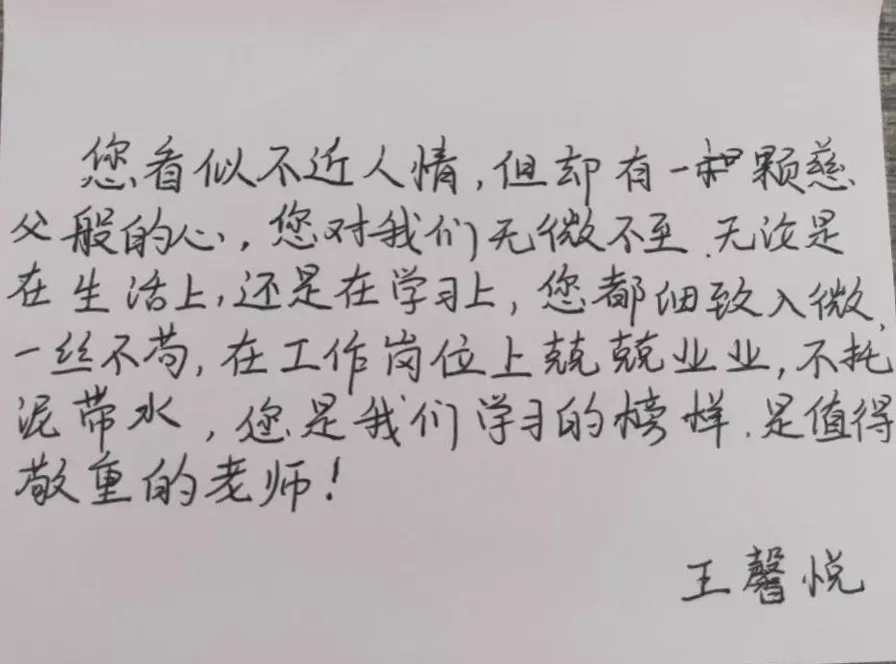 您看似不近人情,但却有一颗慈
父般的心,您对我们无微不至.无论是
在生活上,还是在学习上,您都细致入微,
一丝不苟,在工作岗位上兢兢业业,不托
泥带水,您是我们学习的榜样.是值得
敬重的老师!
王馨悦